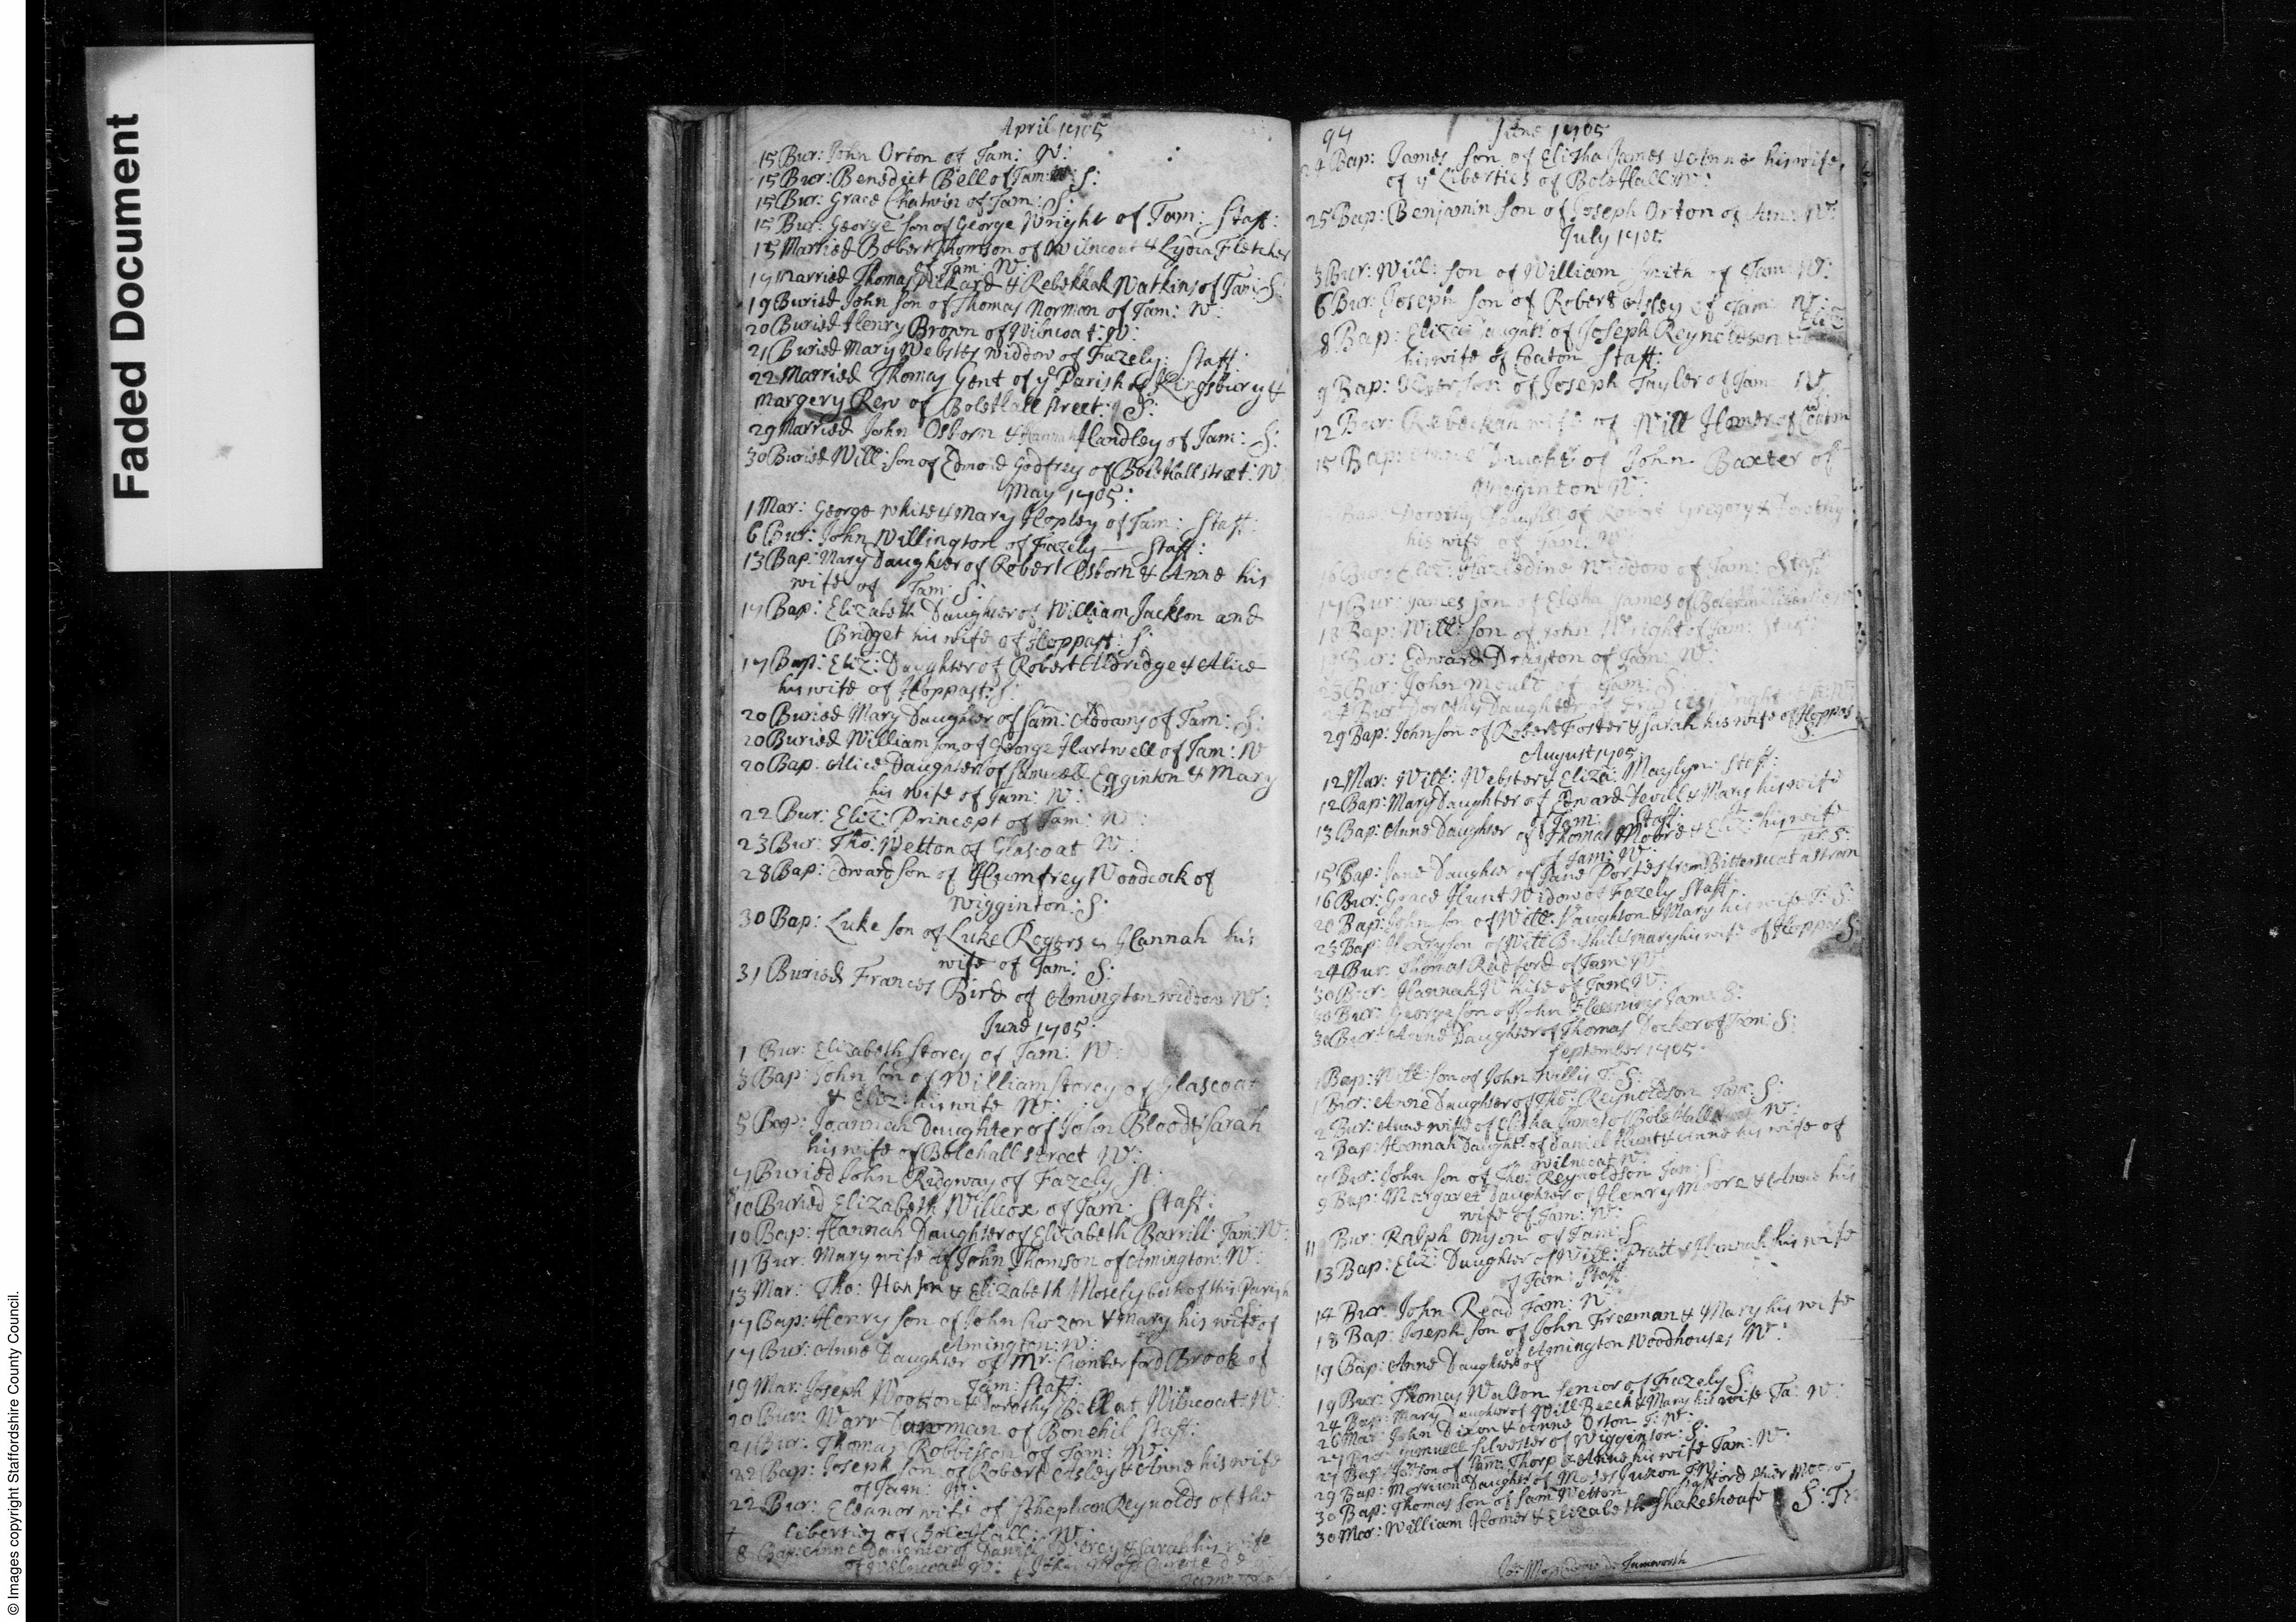 Faded Document
© Images copyright Staffordshire County Council.
April 1705
15 Bur: John Orton of Tam: W:
15 Bur: Benedict Bell of Tam: S:
15 Bur: Grace Chatwin of Tam: S:
15 Bur: George son of George Wright of Tam: Staff:
15 Married Robert Thomson of Wilncoat & Lydia Fletcher
of Tam: W:
19 Married Thomas Pickard & Rebekkah Watkins of Tam: S:
19 Buried John son of Thomas Norman of Tam: W:
20 Buried Henry Brown of Wilncoat: W:
21 Buried Mary Webster widdow of Fazely: Staff:
22 Married Thomas Gent of ye Parish of Kingsbury &
Margery Rew of Bolehall street: S:
29 Married John Osborn & Hannah Handley of Tam: S:
30 Buried Will: son of Edmond Godfrey of Bolehall street: W
May 1705:
1 Mar: George White & Mary Hopley of Tam: Staff:
6 Bur: John Willington of Fazely — Staff:
13 Bap: Mary Daughter of Robert Osborn & Anne his
wife of Tam: S:
17 Bap: Elizabeth Daughter of William Jackson and
Bridget his wife of Hoppast: S:
17 Bap: Eliz: Daughter of Robert Aldridge & Alice
his wife of Hoppast: S:
20 Buried Mary Daughter of Sam: Addams of Tam: S:
20 Buried William son of George Hartwell of Tam: W
20 Bap: Alice Daughter of Samuell Egginton & Mary
his wife of Tam: W:
22 Bur: Eliz: Princept of Tam: W:
23 Bur: Tho: Wetton of Glascoat W:
28 Bap: Edward son of Humfrey Woodcock of
Wigginton: S:
30 Bap: Luke son of Luke Rogers & Hannah his
wife of Tam: S:
31 Buried Frances Bird of Amington widdow W:
June 1705:
1 Bur: Elizabeth Storey of Tam: W:
3 Bap: John son of William Storey of Glascoat
& Eliz: his wife W:
5 Bap: Joannah Daughter of John Blood & Sarah
his wife of Bolehall street W:
7 Buried John Ridgway of Fazely St:
10 Buried Elizabeth Willcox of Tam: Staff:
10 Bap: Hannah Daughter of Elizabeth Barrill: Tam: W:
11 Bur: Mary wife of John Thomson of Amington: W:
13 Mar: Tho: Hanson & Elizabeth Mosely both of this Parish
17 Bap: Henry son of John Curzon & Mary his wife of
Amington: W:
17 Bur: Anne Daughter of Mr. Comberford Brook of
Tam: Staff:
19 Mar: Joseph Wootton & Dorothy Bell at Wilncoat: W:
20 Bur: of Bonehil Staff:
21 Bur: Thomas of Tam: W:
22 Bap: Joseph son of Robert Asley & Anne his wife
of Tam: W:
22 Bur: Eleanor wife of Stephen Reynolds of the
Liberties of Bolehall: W:
8 Bap: Anne Daughter of & Sarah his wife
of Wilncoat W:
94
June 1705
24 Bap: James son of Elisha James & Anne his wife,
of ye Liberties of Bole Hall: W:
25 Bap: Benjamin son of Joseph Orton of Am: W:
July 1705
3 Bur: Will: son of William Smith of Tam: W:
6 Bur: Joseph son of Robert Asley of Tam: W:
8 Bap: Eliza: Daught: of Joseph Reynoldson & Eliz:
his wife of Coaton Staff:
9 Bap: Oliver son of Joseph Tayler of Tam W:
12 Bur: Rebeckah wife of Will Homer of Coaton
15 Bap: Daught: of John Baxter of
Wiginton W:
Bap: Dorothy Daughter of Robert Gregory & Dorothy
his wife of Tam: W
16 Bur: Eliz: Hazledine Widdow of Tam: Staf:
17 Bur: James son of Elisha James of Bolehall
18 Bap: Will: son of John Wright of Tam: Staf:
Bur: Edward Drayton of Tam: W:
23 Bur: John Moult of Tam: S:
24 Bur: Dorothy Daughter of
29 Bap: John son of Robert Foster & Sarah his wife of Hoppas
S:
August 1705
12 Mar: Will: Webster & Eliza: Maylyn: Staff:
12 Bap: Mary Daughter of Edward & Mary his wife
of Tam: Staff:
13 Bap: Anne Daughter of Thomas Moore & Eliz: his wife
of Tam: W:
15 Bap: Jane Daughter of Jane Porter from
16 Bur: Grace Hunt Widow of Fazely Staff:
20 Bap: John son of Will: & Mary his wife T: S:
23 Bap: Henry son of Will & Mary his wife of Hoppas S:
24 Bur: Thomas Radford of Tam: W
30 Bur: Hannah White of Tam: W:
30 Bur: George son of John Fleeming Tam: S:
30 Bur: Anne Daughter of Thomas Docker of Tam: S:
September 1705
1 Bap: Will: son of John Willis T: S:
1 Bur: Anne Daughter of Tho: Reynoldson Tam: S:
2 Bur: Anne wife of Elisha James of Bole Hall street W:
2 Bap: Hannah Daught: of Daniel Hunt & Anne his wife of
Wilncoat W:
7 Bur: John son of Tho: Reynoldson Tam: S:
9 Bap: Margaret Daughter of Henry Moore & Anne his
wife of Tam: W:
11 Bur: Ralph Onyon of Tam: S:
13 Bap: Eliz: Daughter of Will: Pratt & Hannah his wife
of Tam: Staff
14 Bur: John Read Tam: W
18 Bap: Joseph son of John Freeman & Mary his wife
of Amington Woodhouses W:
19 Bap: Anne Daughter of
19 Bur: Thomas Walton Senior of Fazely S:
24 Bap: Mary Daughter of Will Beech & Mary his wife Ta: W:
26 Mar: John Dixon & Anne Orton T: W:
27 Bur: Samuell Silvester of Wigginton: S:
27 Bap: son of Sam: Thorp & Anne his wife Tam: W:
29 Bap: Daughter of Moses T: W:
30 Bap: Thomas son of Sam: Wetton
30 Mar: William Homer & Elizabeth Shakesheafe S: T:
Tamworth